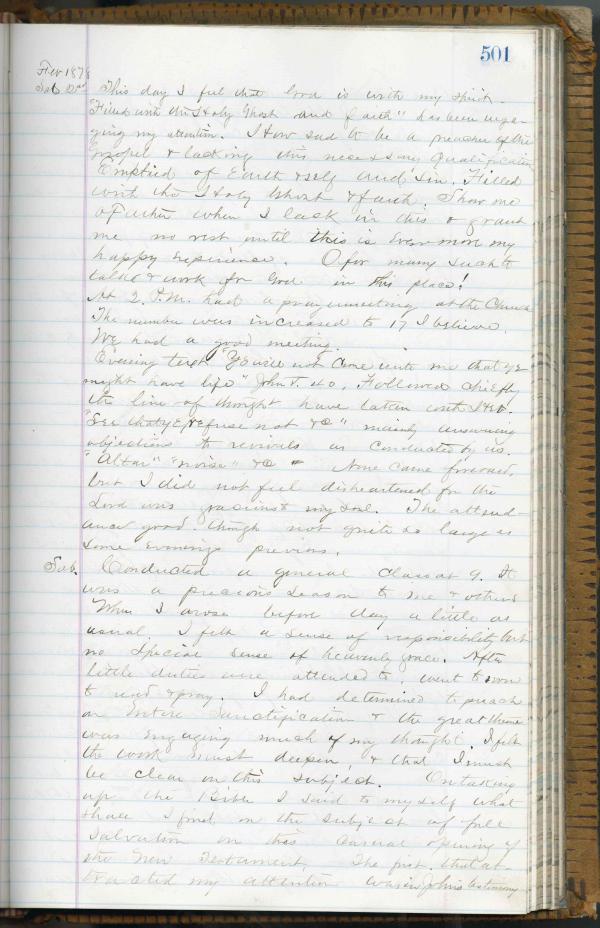 501
Fev 1878
Sat 2nd This day I feel that Lord is with my spirit.
"Filled with the Holy Ghost and faith" has been enga-
ging my attention. How sad to be a preacher of the
Gospel & lacking this necessary qualification
Emptied of Earth & self and sin. Filled
with the Holy Ghost & faith. Show me
o Father when I lack in this & grant
me no rest until this is Evermore my
happy experience. O for many such to
labor & work for God in this place!
At 2 P.M. had a prayermeeting at the Church
The number was increased to 17 I believe.
We had a good meeting.
Evening text "Ye will not come unto me that ye
might have life" John 5. 40. Followed chiefly
the line of thought have taken with Heb.
"See that ye refuse not &c" mainly answering
objections to revivals as conducted by us.
"Altar" "noise" &c None came forward,
but I did not feel disheartened for the
Lord was my soul. The attend-
ance good though not quite as large as
some evenings previous.
Sab. Conducted a general class at 9. It
was a precious season to me & others
When I arose before day a little as
usual, I felt a sense of responsibility but
no special sense of heavenly grace. After
little duties were attended to, went to
to read & pray. I had determined to preach
on Entire Sanctification & the great theme
was engaging much of my thought. I felt
the work must deepen, & that I must
be clear on this subject. On taking
up the Bible I said to myself what
shall I find on the subject of full
Salvation on this casual opening of
the New Testament. The first that at-
tracted my attention was in John's testimony